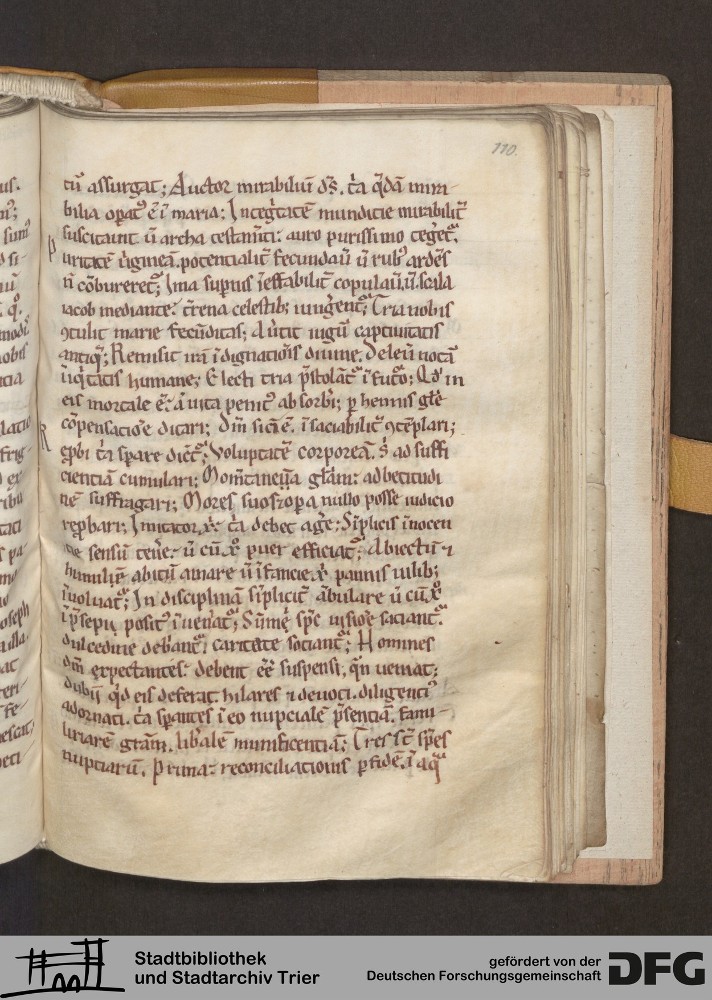 110.
tū assurgat; Auctor mirabiliū ds̄. t̄a q̄dā mira-
bilia opat᷒ ē ī maria: Inteḡtatē mundicie mirabilit᷒
suscitauit ū archa testam̄ti: auro purissimo teget᷒.
uritatē ūgineā. potencialit᷒ fecundaū ū rub᷒ ardēs
n̄ cōbureret᷒; Ima supnis īeffabilit᷒ copulaū. ū. scala
iacob mediante: t̄rena celestib; iungent᷒; Tria nobis
ꝯtulit marie fecūditas; Aūtit iugū captiuitatis
antiq̄; Remisit irā īdignatiōis diuine. Deleuī notā
īiq̄tatis humane; Electi tria p̄stolant᷒ ī fut᷒o; Qd̄ in
eis mortale ē: a uita penit᷒ absorbi; p hennis gl̄e
cōpensatiōe ditari; Dm̄ sic̄ ē. īsaciabilit᷒ ꝯtēplari;
ep̄bi t̄a spare dic̄t᷒; Voluptatē corporeā. s̄ ad suffi
cientiā cumulari; Momtaneā gl̄am: ad betitudi
nē suffragari; Mores suos ꝛ opa nullo posse iudicio
rep̄bari; Imitator xp̄c t̄a debet agē: Sīplicis īnocen
tie sensū tenē: ū cū xp̄ puer efficiat᷒; Abiectū ꝛ
humilē abitū amare ū īfancie xp̄ pannis uilib;
īuoluat᷒; In disciplinā sīplicit᷒ ābulare ū cū xp̄
ī p̄sepiī posit᷒ īueniat᷒; Sūmē spē uisiōe saciant᷒.
dulcedine deb̄ant᷒. caritate sociant᷒; Homines
dm̄ expectantes: debent eē suspensi, q̄n ueniat;
Dubii q̄d eis deferat. hilares ꝛ deuoti. diligenti᷒
adornati. t̄a spantes ī eo nupcialē p̄sentiā. fami-
liarē grām. lib̄alē munificentiā; Tres st̄ spēs
nuptiarū. Prima: reconciliationis p fidē. ī aq̄
Stadtbibliothek
und Stadtarchiv Trier
gefördert von der
Deutschen Forschungsgemeinschaft
DFG